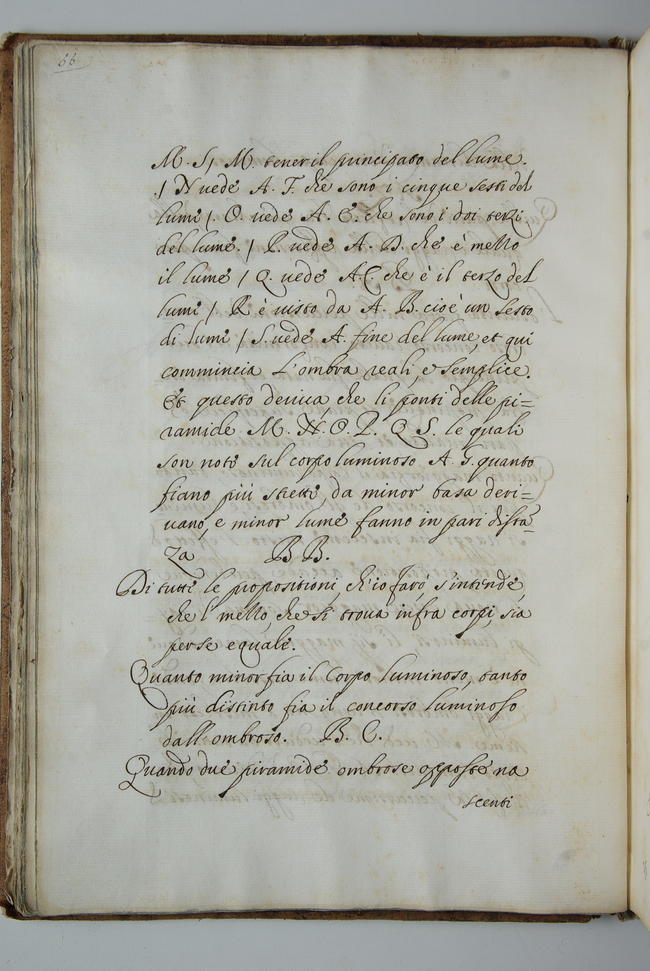 66
M. S, M. tener il principato del lume.
/ N uede A. F. che sono i cinque sesti del
lume /. O. uede A. E. che sono i doi terzi
del lume. / P. uede A. D. che è mezzo
il lume / Q. uede A.C. che è il terzo del
lume /. R è uisto da A. B. cioè un sesto
di lume / S. uede A. fine del lume, et qui
commincia L'ombra reale, e semplice.
Et questo deriua, che li ponti delle pi=
ramide M. N. O. P. Q S. le quali
son note sul corpo luminoso A. G. quanto
fiano più stretti, da minor basa deri=
uano, e minor lume fanno in pari dista˜=
za B B.
Di tutte le propositioni, ch'io farò, s'intende,
che 'l mezzo, che si troua infra corpi, sia
per se equale.
Quanto minor fia il Corpo luminoso, tanto
più distinto fia il concorso luminoso
dall'ombroso. B. C.
Quando due piramide ombrose opposte na
scenti